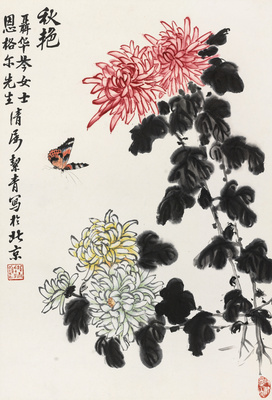 秋艳
聂华苓女士
恩格尔先生清属 絜青写於北京